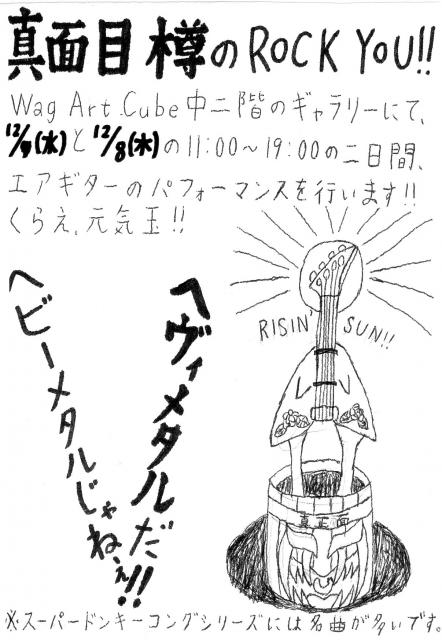 真面目 樽のROCK YOU!!
Wag Art Cube 中二階のギャラリーにて、
12/7(水)と12/8(木)の11:00~19:00の二日間、
エアギターのパフォーマンスを行います!!
くらえ、元気玉!!
RISIN' SUN!!
ヘヴィメタルだ!!
ヘビーメタルじゃねぇ!!
真正面
※スーパードンキーコングシリーズには名曲が多いです。